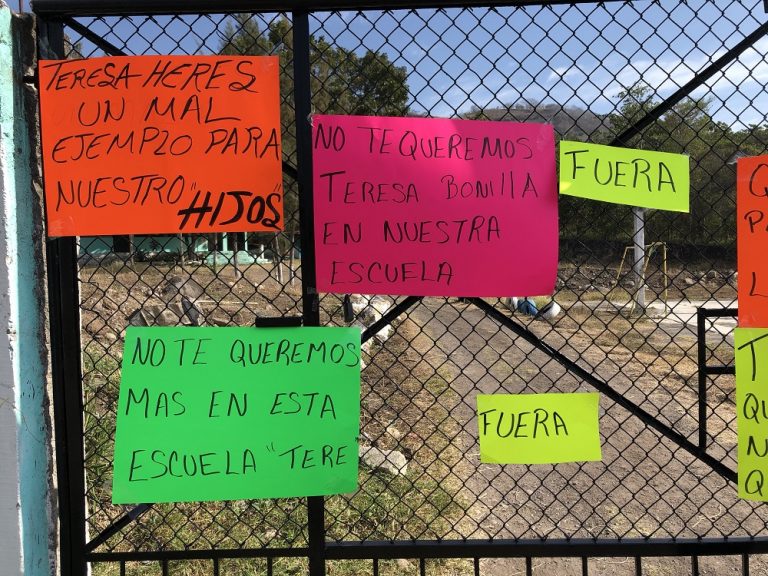 TERESA HERES
UN MAL
EJEMPLO PARA
NUESTRO "HIJOS"
NO TE QUEREMOS
TERESA BONILLA
EN NUESTRA
ESCUELA
FUERA
NO TE QUEREMOS
MAS EN ESTA
ESCUELA "TERE"
FUERA